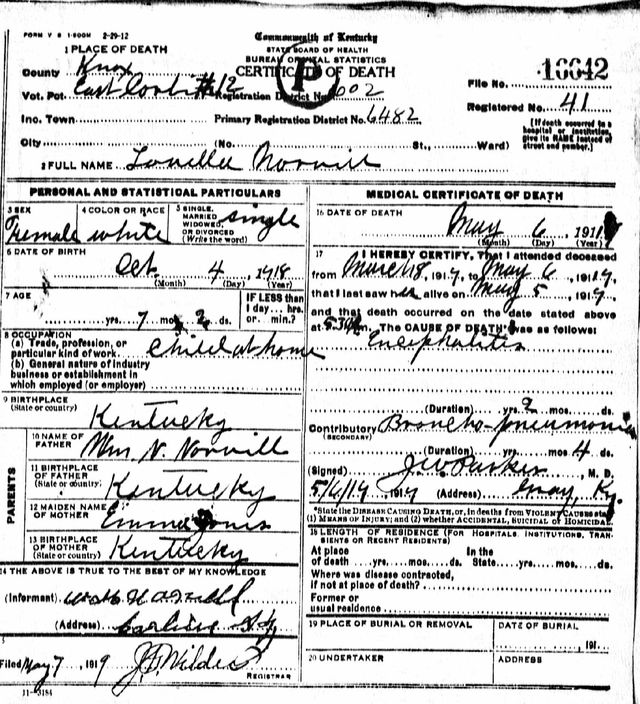 FORM V S 1-500M 2-29-12
Commonwealth of Kentucky
STATE BOARD OF HEALTH
BUREAU OF VITAL STATISTICS
CERTIFICATE OF DEATH
1 PLACE OF DEATH
County Knox
Vot. Pct. East Corbin #12 Registration District No. 1002
File No. 16642
Inc. Town Primary Registration District No. 6482
Registered No. 41
City (No. St., Ward)
[If death occurred in a hospital or institution, give its NAME instead of street and number.]
2 FULL NAME Norvill
PERSONAL AND STATISTICAL PARTICULARS
3 SEX Female
4 COLOR OR RACE white
5 SINGLE, MARRIED, WIDOWED, OR DIVORCED (Write the word) single
6 DATE OF BIRTH
Oct. 4, 1918
(Month) (Day) (Year)
7 AGE
yrs. 7 mos. 2 ds.
IF LESS than 1 day... hrs. or... min.?
8 OCCUPATION
(a) Trade, profession, or particular kind of work child at home
(b) General nature of industry business or establishment in which employed (or employer)
9 BIRTHPLACE
(State or country) Kentucky
PARENTS
10 NAME OF FATHER Wm N. Norvill
11 BIRTHPLACE OF FATHER (State or country) Kentucky
12 MAIDEN NAME OF MOTHER Emma Jones
13 BIRTHPLACE OF MOTHER (State or country) Kentucky
14 THE ABOVE IS TRUE TO THE BEST OF MY KNOWLEDGE
(Informant)
(Address) Ky
Filed May 7, 1919 Wilder
REGISTRAR
11-3184
MEDICAL CERTIFICATE OF DEATH
16 DATE OF DEATH
May 6, 191
(Month) (Day) (Year)
17 I HEREBY CERTIFY, That I attended deceased
from March 18, 1919, to May 6, 1919,
that I last saw her alive on May 5, 1919,
and that death occurred on the date stated above
at 5:30 m. The CAUSE OF DEATH was as follows:
Encephalitis
(Duration) yrs. 2 mos. ds.
Contributory (SECONDARY) Broncho-pneumonia
(Duration) mos. 4 ds.
(Signed) J.W. Parker, M. D.
5/6/19, 1919 (Address) Gray, Ky.
*State the DISEASE CAUSING DEATH, or, in deaths from VIOLENT CAUSES state (1) MEANS OF INJURY; and (2) whether ACCIDENTAL, SUICIDAL or HOMICIDAL.
18 LENGTH OF RESIDENCE (FOR HOSPITALS, INSTITUTIONS, TRANSIENTS OR RECENT RESIDENTS)
At place of death yrs. mos. ds. In the State yrs. mos. ds.
Where was disease contracted, if not at place of death?
Former or usual residence
19 PLACE OF BURIAL OR REMOVAL
DATE OF BURIAL
191
20 UNDERTAKER
ADDRESS